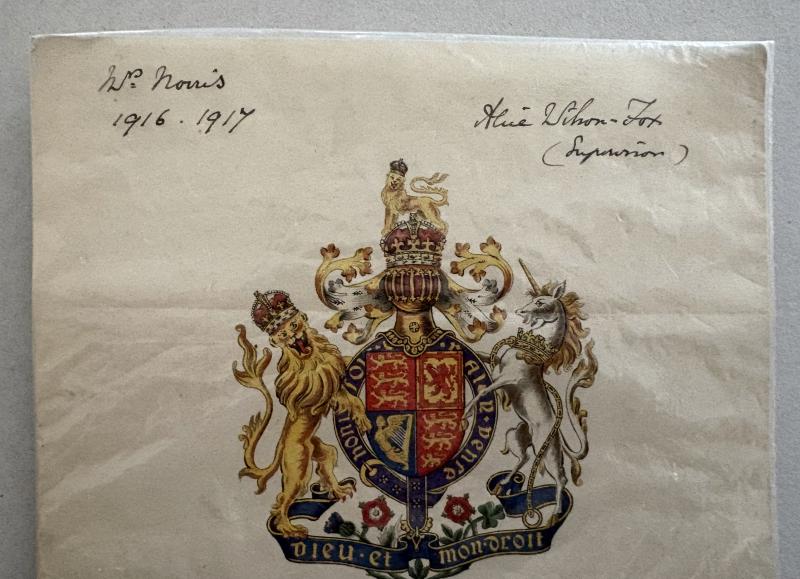 Mrs. Norris
1916 - 1917
Alice Wilson-Fox
(Supervisor)
honi soit
mal y pense
DIEU · et mon · DROIT